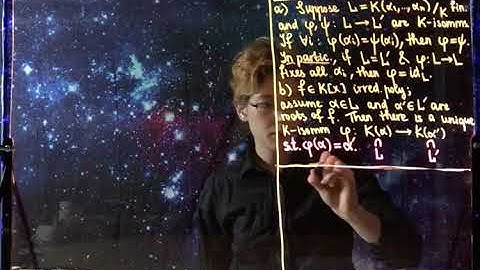 a) Suppose L = K(α₁,..,αₙ)/K fin.
and φ, ψ: L → L' are K-isomms.
If ∀i: φ(αᵢ)=ψ(αᵢ), then φ=ψ.
In partic., if L=L' & φ: L→L'
fixes all αᵢ, then φ = id_L.
b) f∈K[x] irred. poly;
assume α∈L and α'∈L' are
roots of f. Then there is a unique
K-isomm φ: K(α) → K(α')
s.t. φ(α)=α'. ∩ ∩
L L'